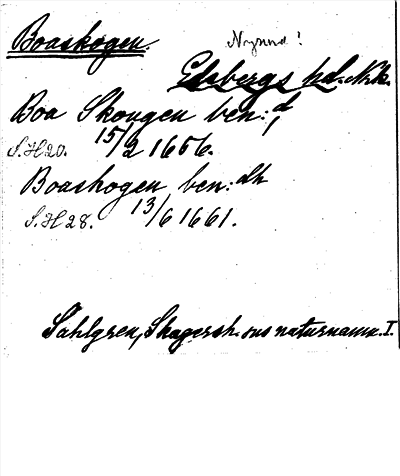 Boaskogen.
Nysund!
Edsbergs hd. Nrk.
Boa Skougen ben: d,
S. H 20. 15/2 1656.
Boashogen ben: dh
S. H 28. 13/6 1661.
Sahlgren, Skagersh. sns naturnamn. I.